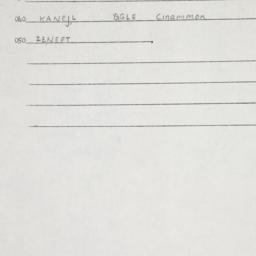 060 KANEJL BGLS Cinammon
050 IBNEFT